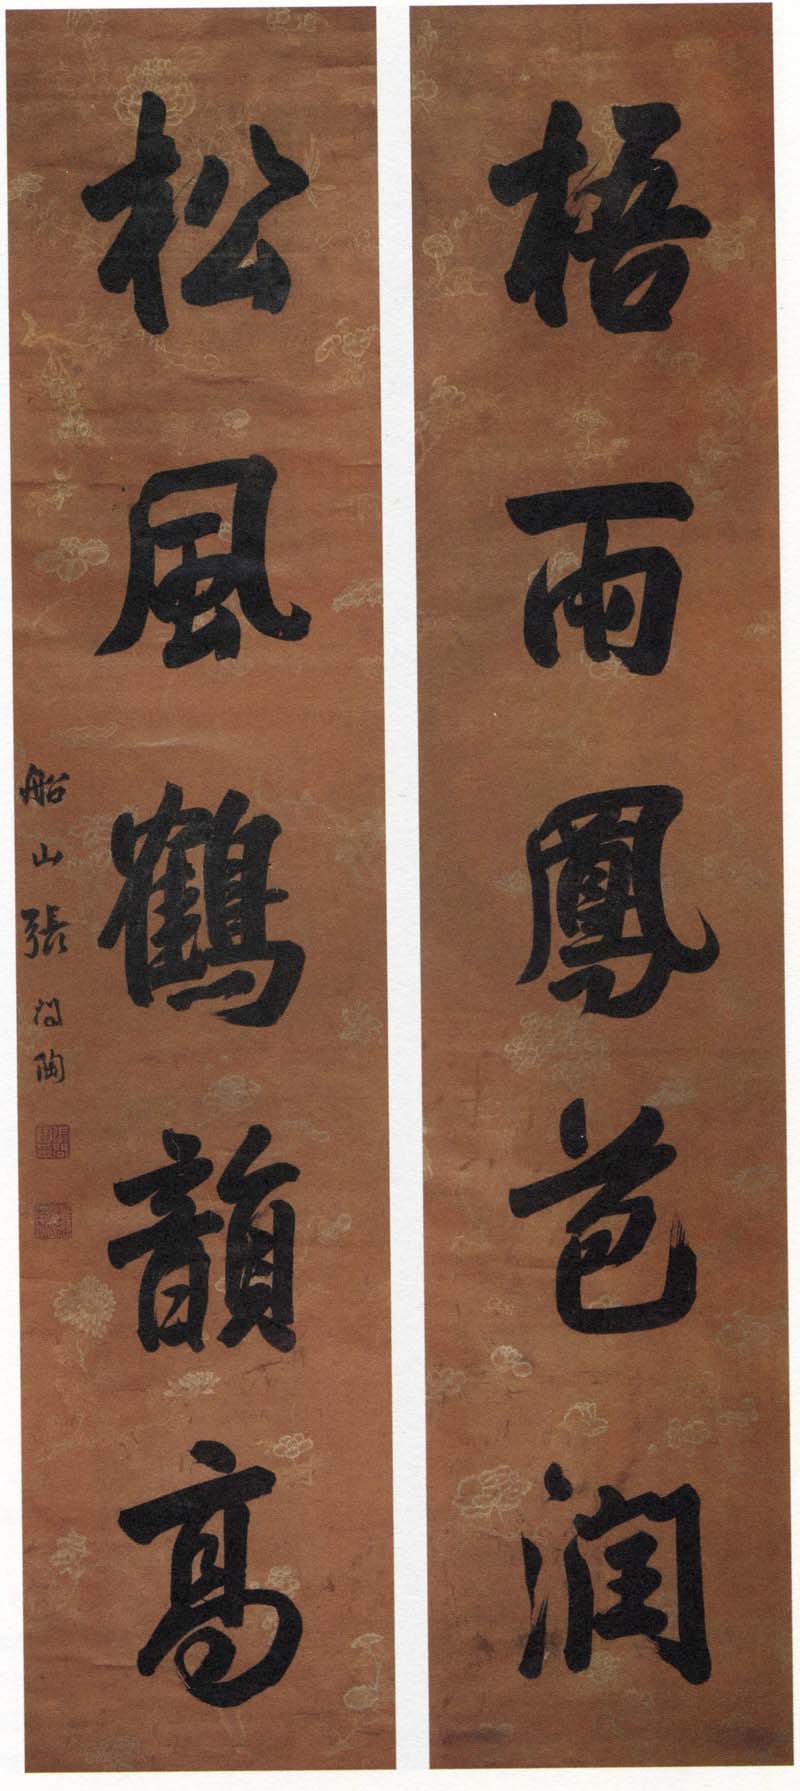 梧雨鳳苞润
松風鶴韻高
船山張问陶